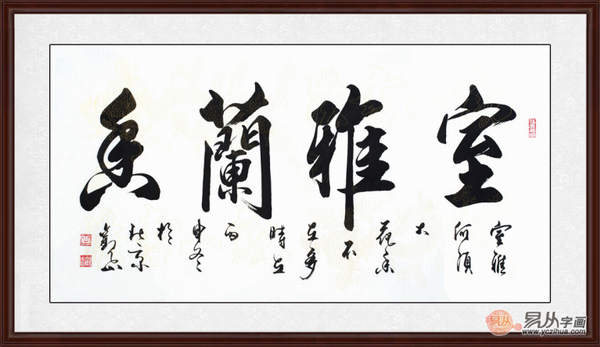 室雅蘭香
室雅
何須
大
花香
不
在多
時在
丙
申冬
於
北京
易从
易从字画
www.yczihua.com